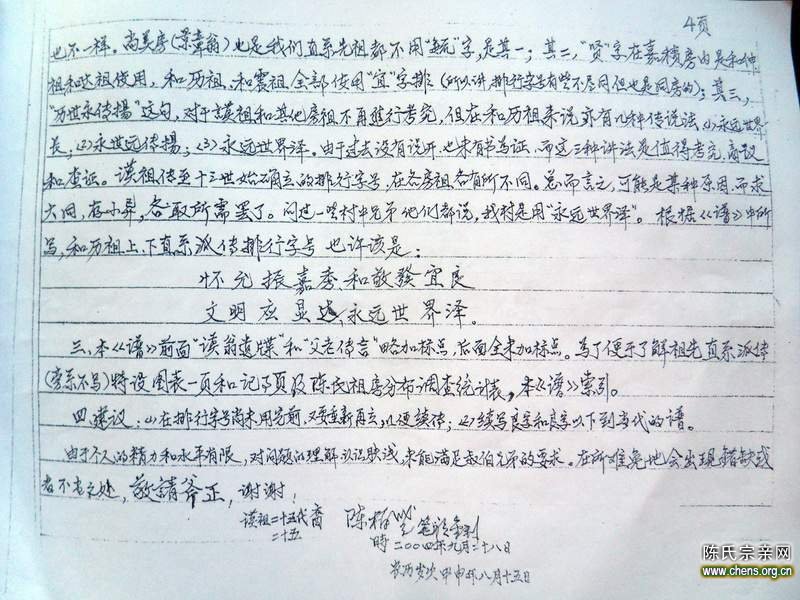 4页
也不一样。尚美房(景常翁)也是我们直系先祖都不用"毓"字,是其一;其二,"贤"字在嘉积房内是和仲
祖和达祖使用,和历祖、和震祖全部使用"宜"字排(所以讲,排行字号有些不尽同但也是同房的);其三,
"万世永传扬"这句,对于谟祖和其他房祖不再进行考究,但在和历祖来说亦有几种传说法(1)永远世界
长;(2)永世远传扬;(3)永远世界泽。由于过去没有说开,也未有书为证,而这三种讲法是值得考究、商议
和查证。谟祖传至十三世始确立的排行字号,在各房祖各有所不同。总而言之,可能是某种原因,而求
大同,存小异,各取所需罢了。问过一些村中兄弟他们都说,我村是用"永远世界泽"。根据《谱》中所
写,和历祖上、下直系派传排行字号 也许该是:
怀允振嘉秀和敬發宜良
文明应显达永远世界泽。
三、本《谱》前面"谟翁遗牒"和"父老传言"略加标点,后面全未加标点。为了便于了解祖先直系派传
(旁系不写)特设图表一页和记事页及陈氏祖房分布调查统计表,本《谱》索引。
四、建议:(1)在排行字号尚未用完前,又要重新再立,以便续传;(2)续写良字和良字以下到当代的谱。
由于个人的精力和水平有限,对问题的理解认识肤浅,未能满足叔伯兄弟的要求。在所难免地会出现错缺或
者不者之处,敬請斧正,谢谢!
谟祖二十五代裔 陈柏
二十五
時二00四年九月二十八日
农历岁次甲申年八月十五日
陈氏宗亲网
www.chens.org.cn